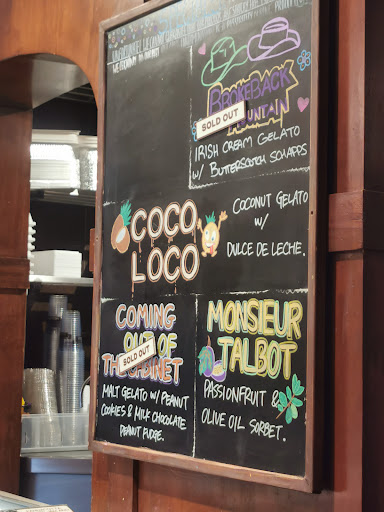 BROKEBACK
SOLD OUT
MOUNTAIN
IRISH CREAM GELATO
W/ BUTTERSCOTCH SCHAPPS
COCO
LOCO
COCONUT GELATO
W/
DULCE DE LECHE.
COMING
OUT OF
SOLD OUT
THE CABINET
MALT GELATO W/ PEANUT
COOKIES & MILK CHOCOLATE
PEANUT FUDGE.
MONSIEUR
TALBOT
PASSIONFRUIT &
OLIVE OIL SORBET.